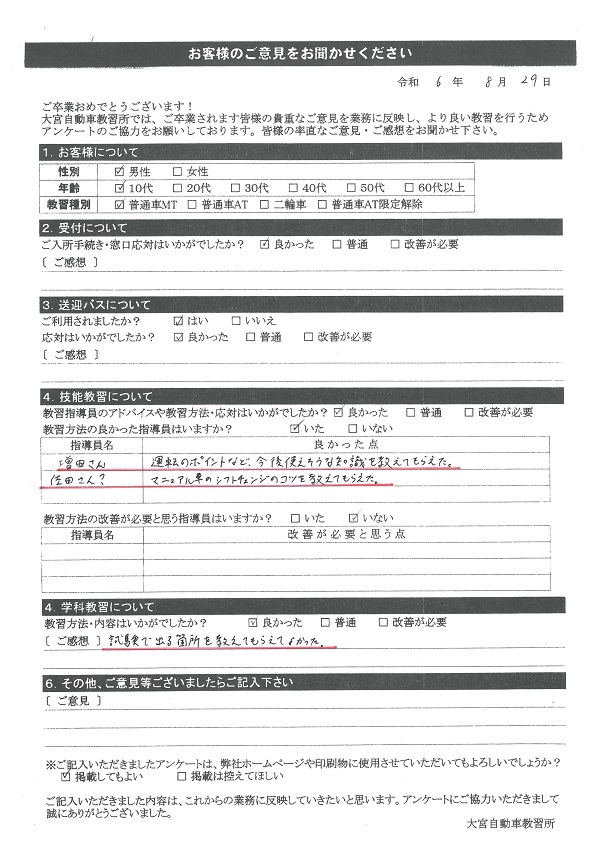 お客様のご意見をお聞かせください
令和 6 年 8 月 29 日
ご卒業おめでとうございます！
大宮自動車教習所では、ご卒業されます皆様の貴重なご意見を業務に反映し、より良い教習を行うため
アンケートのご協力をお願いしております。皆様の率直なご意見・ご感想をお聞かせ下さい。
1. お客様について
性別 ☑ 男性 □ 女性
年齢 ☑ 10代 □ 20代 □ 30代 □ 40代 □ 50代 □ 60代以上
教習種別 ☑ 普通車MT □ 普通車AT □ 二輪車 □ 普通車AT限定解除
2. 受付について
ご入所手続き・窓口応対はいかがでしたか？ ☑ 良かった □ 普通 □ 改善が必要
〔 ご感想 〕
3. 送迎バスについて
ご利用されましたか？ ☑ はい □ いいえ
応対はいかがでしたか？ ☑ 良かった □ 普通 □ 改善が必要
〔 ご感想 〕
4. 技能教習について
教習指導員のアドバイスや教習方法・応対はいかがでしたか？ ☑ 良かった □ 普通 □ 改善が必要
教習方法の良かった指導員はいますか？ ☑ いた □ いない
指導員名 良かった点
増田さん 運転のポイントなど、今後使えそうな知識を教えてもらえた。
佐田さん？ マニュアル車のシフトチェンジのコツを教えてもらえた。
教習方法の改善が必要と思う指導員はいますか？ □ いた ☑ いない
指導員名 改善が必要と思う点
4. 学科教習について
教習方法・内容はいかがでしたか？ ☑ 良かった □ 普通 □ 改善が必要
〔 ご感想 〕 試験で出る箇所を教えてもらえてよかった。
6. その他、ご意見等ございましたらご記入下さい
〔 ご意見 〕
※ご記入いただきましたアンケートは、弊社ホームページや印刷物に使用させていただいてもよろしいでしょうか？
☑ 掲載してもよい □ 掲載は控えてほしい
ご記入いただきました内容は、これからの業務に反映していきたいと思います。アンケートにご協力いただきまして
誠にありがとうございました。
大宮自動車教習所